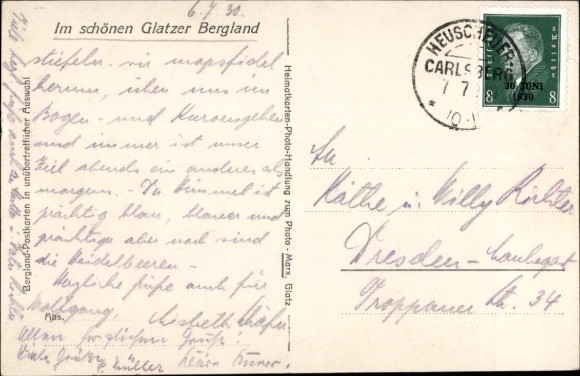 6.7.30.
Im schönen Glatzer Bergland
stiefeln wir mopsfidel
herum, üben uns im
Bogen- und Kurvengehen
und immer ist unser
Ziel abends ein anderes als
morgens. - Der Himmel ist
prächtig blau, blauer und
prächtiger aber noch sind
die Heidelbeeren. -
Herzliche Grüße auch für
Wolfgang, Lisbeth
Allen herzlichen Gruß!
Viele Grüße
Müller
Abs.
Bergland-Postkarten in unübertrefflicher Auswahl
Heimatkarten-Photo-Handlung zum Photo-Marx, Glatz
HEUSCHEUER
CARLSBERG
7 7
30. JUNI
1930
8 8
An
Käthe u. Willy Richter
Dresden-Laubegast
Troppauer Str. 34